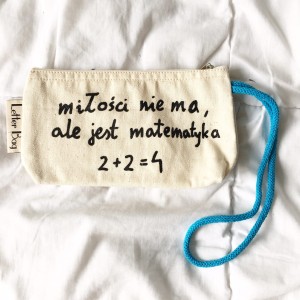 miłości nie ma,
ale jest matematyka
2+2=4
Letter Bag